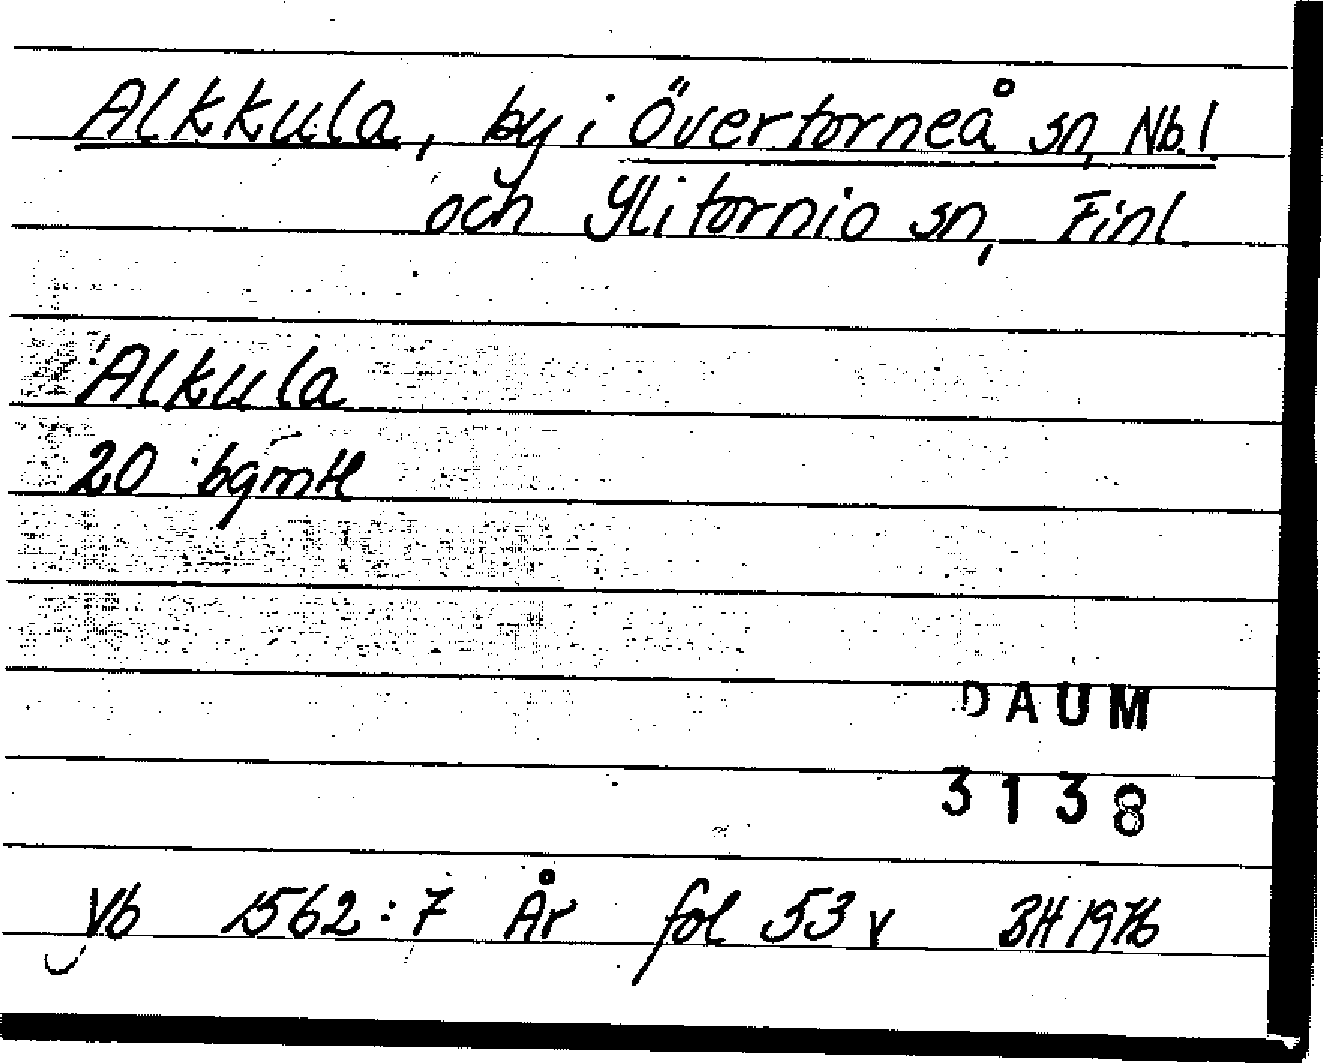 Alkkula, by i Övertorneå sn, Nb.l
och Ylitornio sn, Finl.
Alkula
20 bgmtl
DAUM
3138
Vb 1562:7 År fol 53 v BH 1976